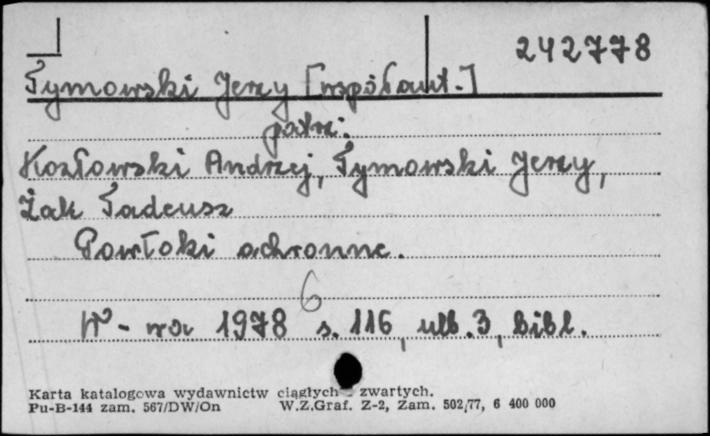 242778
Tymowski Jerzy [współaut.]
patrz:
Kozłowski Andrzej, Tymowski Jerzy,
Żak Tadeusz
Powłoki ochronne.
6
W-wa 1978 s. 116, nlb. 3, bibl.
Karta katalogowa wydawnictw ciągłych - zwartych.
Pu-B-144 zam. 567/DW/On W.Z.Graf. Z-2, Zam. 502/77, 6 400 000